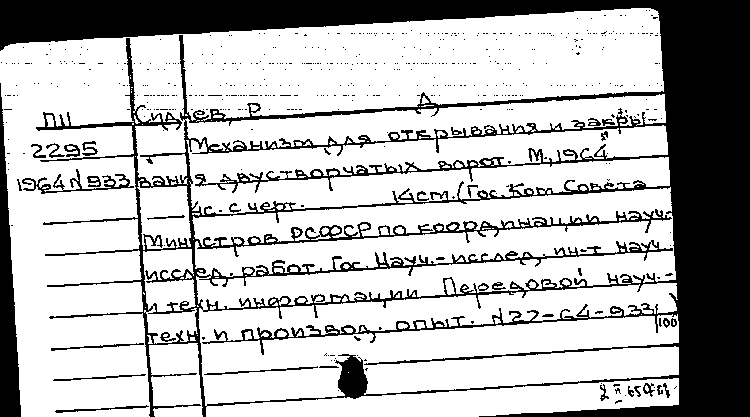 ПП Сиднев, Р Д
2295 Механизм для открывания и закры-
1964 N933 вания двустворчатых ворот. М, 1964.
4с. с черт. 14см. (Гос. Ком Совета
Министров РСФСР по координации науч.-
исслед. работ. Гос. Науч.-исслед. ин-т науч.
и техн. информации Передовой науч.-
техн. и производ. опыт. N22-64-933)
100